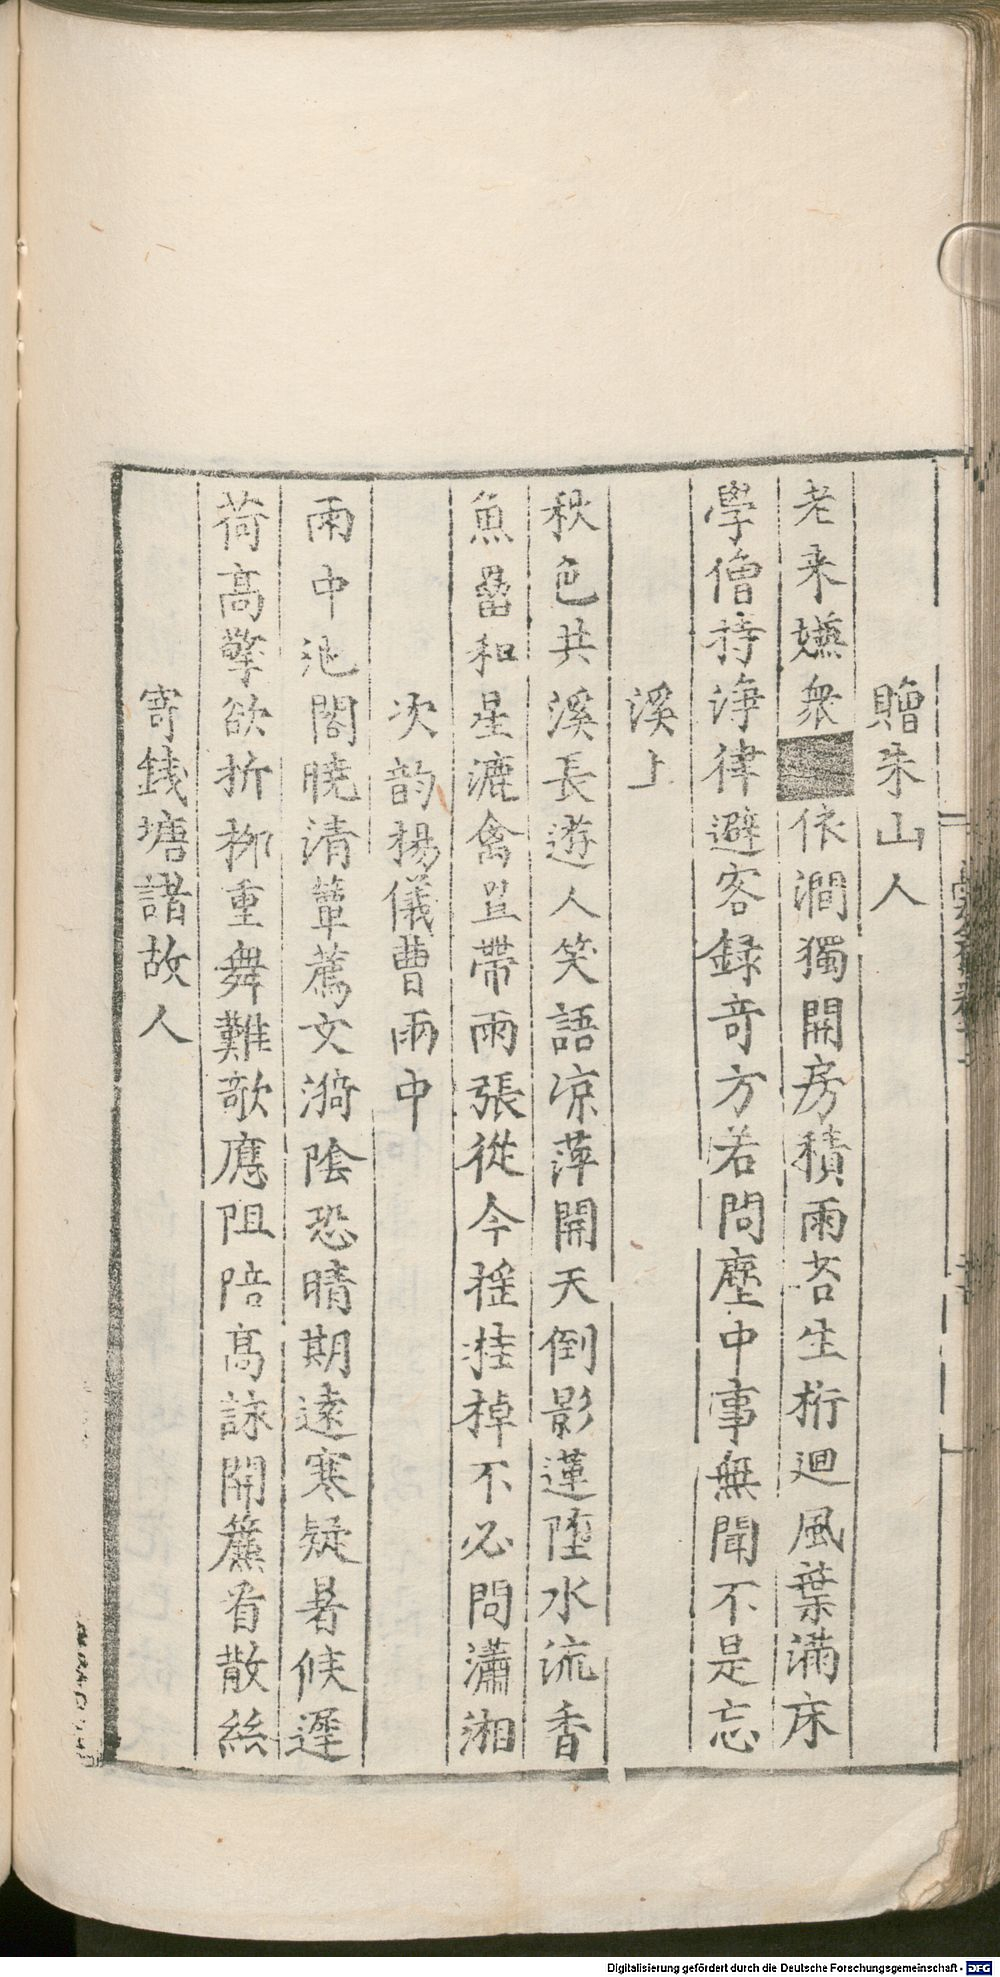 贈朱山人
老来嬾衆■依澗獨開房積雨苔生桁迴風葉滿床
學僧持淨律避客録奇方若問塵中事無聞不是忘
溪上
秋色共溪長遊人笑語凉萍開天倒影蓮墮水流香
魚罾和星漉禽罝帶雨張從今摇桂棹不必問瀟湘
次韵楊儀曹雨中
雨中池閣曉清簟薦文漪陰恐晴期遠寒疑暑候遲
荷高擎欲折栁重舞難欹應阻陪高詠開簾看散絲
寄錢塘諸故人
Digitalisierung gefördert durch die Deutsche Forschungsgemeinschaft - DFG